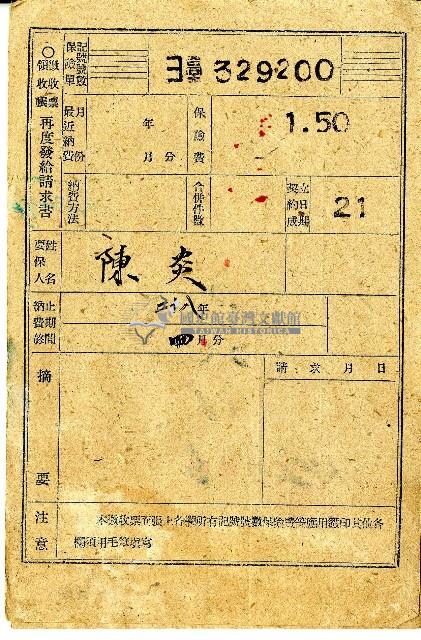 ○徵收票
領收賬 再度發給請求書
保險單
記號號數
329200
最近納費
月份
年
月 分
保險費
1.50
納費方法
合併件數
契約成立
日期
21
要保人
姓名
陳炎
納費終止
期間
二十八年
四月分
國史館臺灣文獻館
TAIWAN HISTORICA
摘要
請 求 月 日
注意
本徵收票正張上各欄所有記號號數保險費等應用戳印其他各
欄須用毛筆填寫